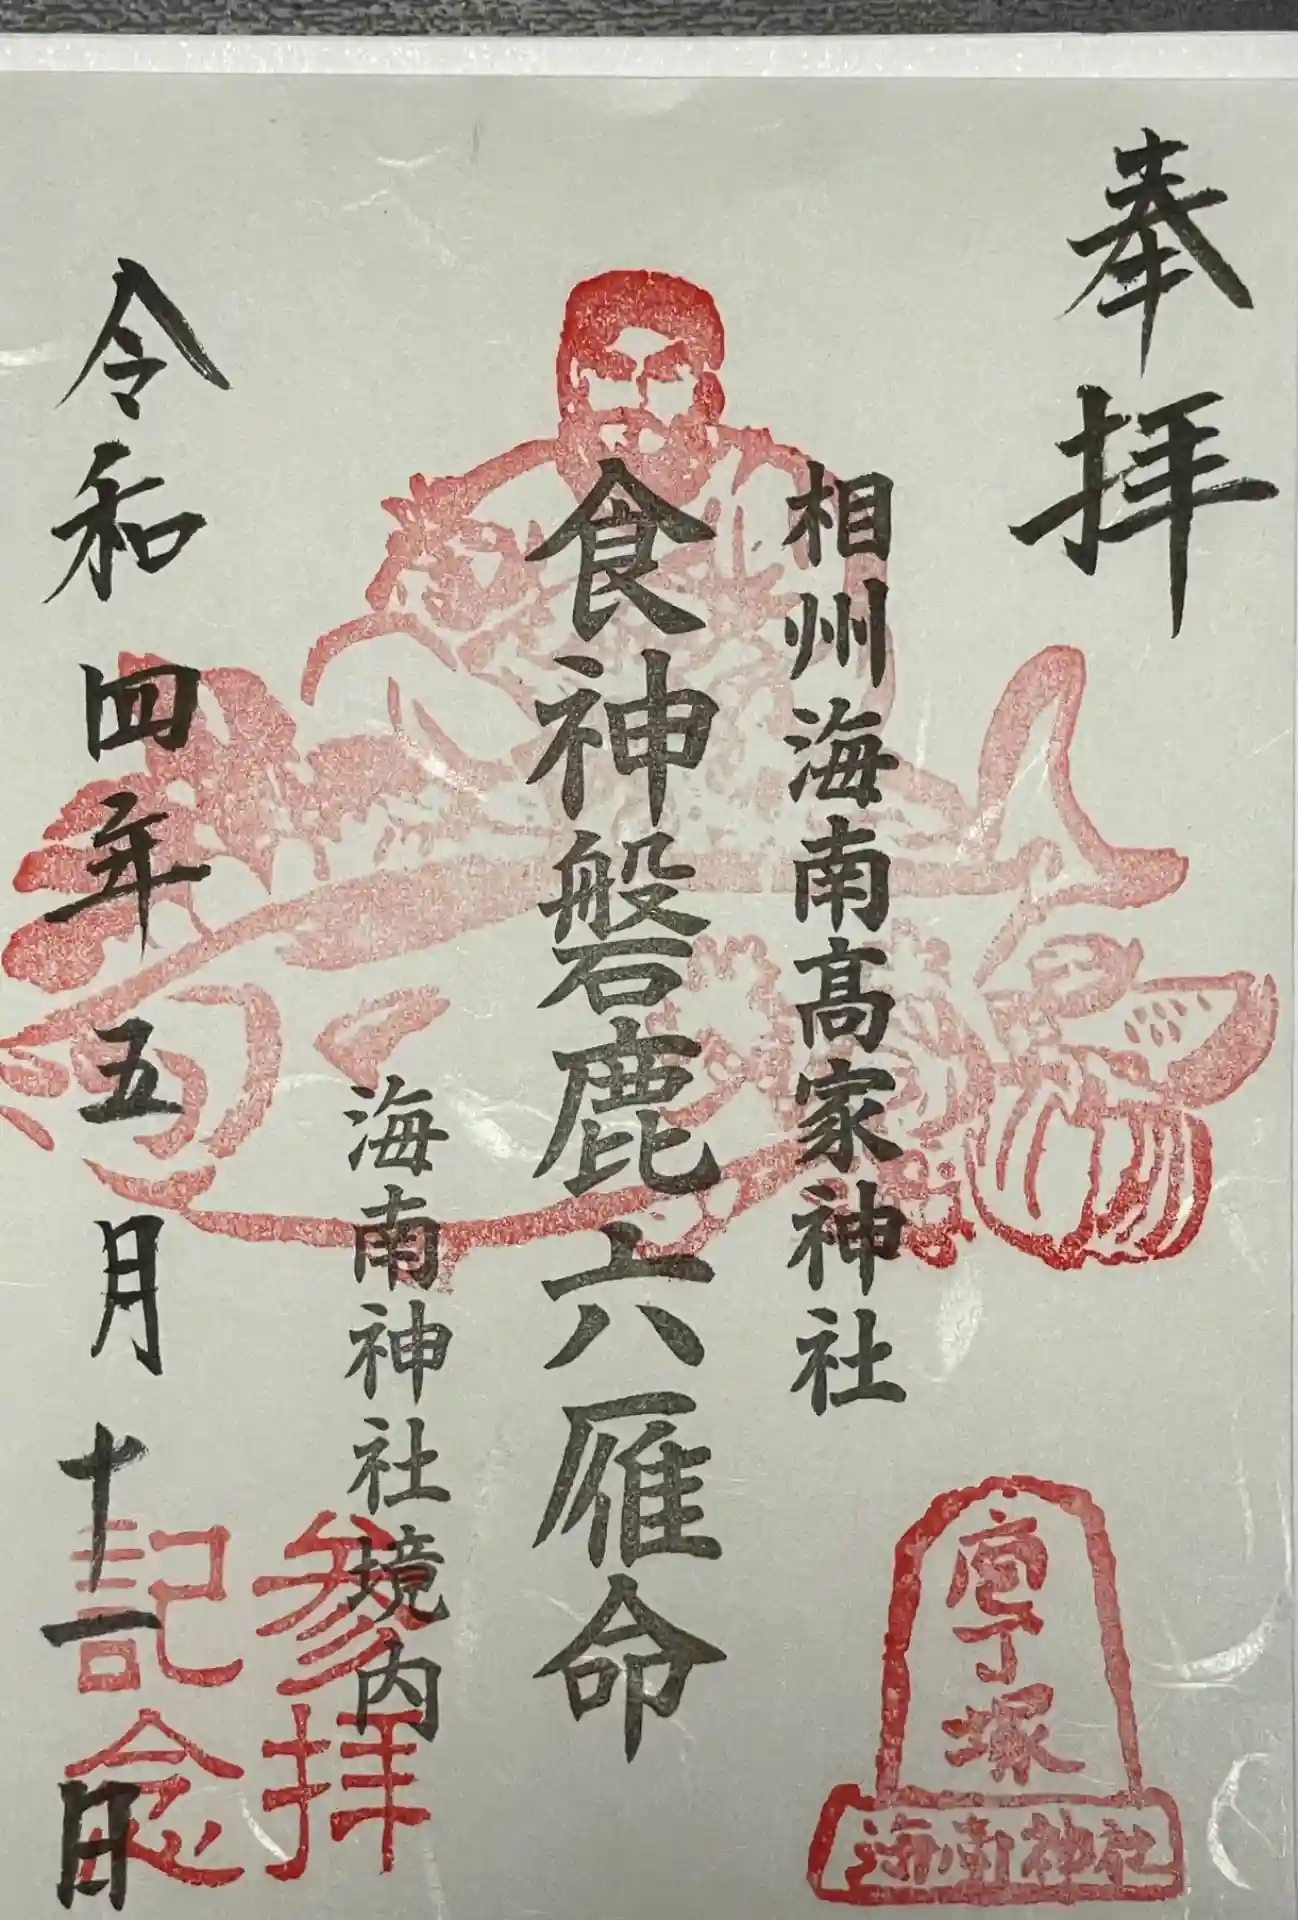 奉拝
相州海南高家神社
食神磐鹿六雁命
海南神社境内
令和四年五月十一日
庖丁塚
海南神社
参拝
記念